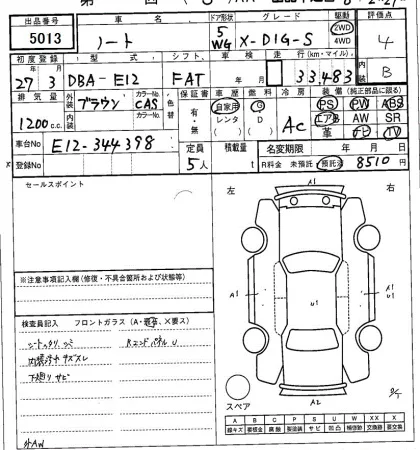 出品番号 車名 ドア形状 グレード 駆動 評価点
5013 ノート 5 WG X-DIG-S 2WD 4WD 4
初度登録 型式 シフト 車検 走行(km・マイル) 内装
27年 3月 DBA-E12 FAT 年 月 33,483 B
排気量 外装 カラーNo. 色替 保証書 車歴 燃料 冷房 装備(純正部品に限る)
1200 c.c. ブラウン CAS 有・無 自家用 レンタ G D AC PS PW ABS
内装 カラーNo. エアB AW SR
革 ナビ TV
車台No E12-344398 定員 積載量 名変期限 年 月 日
登録No 5人 t R料金 未預託 預託済 8510円
セールスポイント
左 右
A1
A1 U1 A1
A2
スペア
※注意事項記入欄(修復・不具合箇所および状態等)
検査員記入 フロントガラス(A・飛石、×要ス)
シートスリ、シミ Rエンドパネル U
内張汚レ キズスレ
下廻リ サビ
外AW
A B C P S U W X XX
線キズ 腐蝕 サビ 凹凸 補修跡 交換跡 要交換